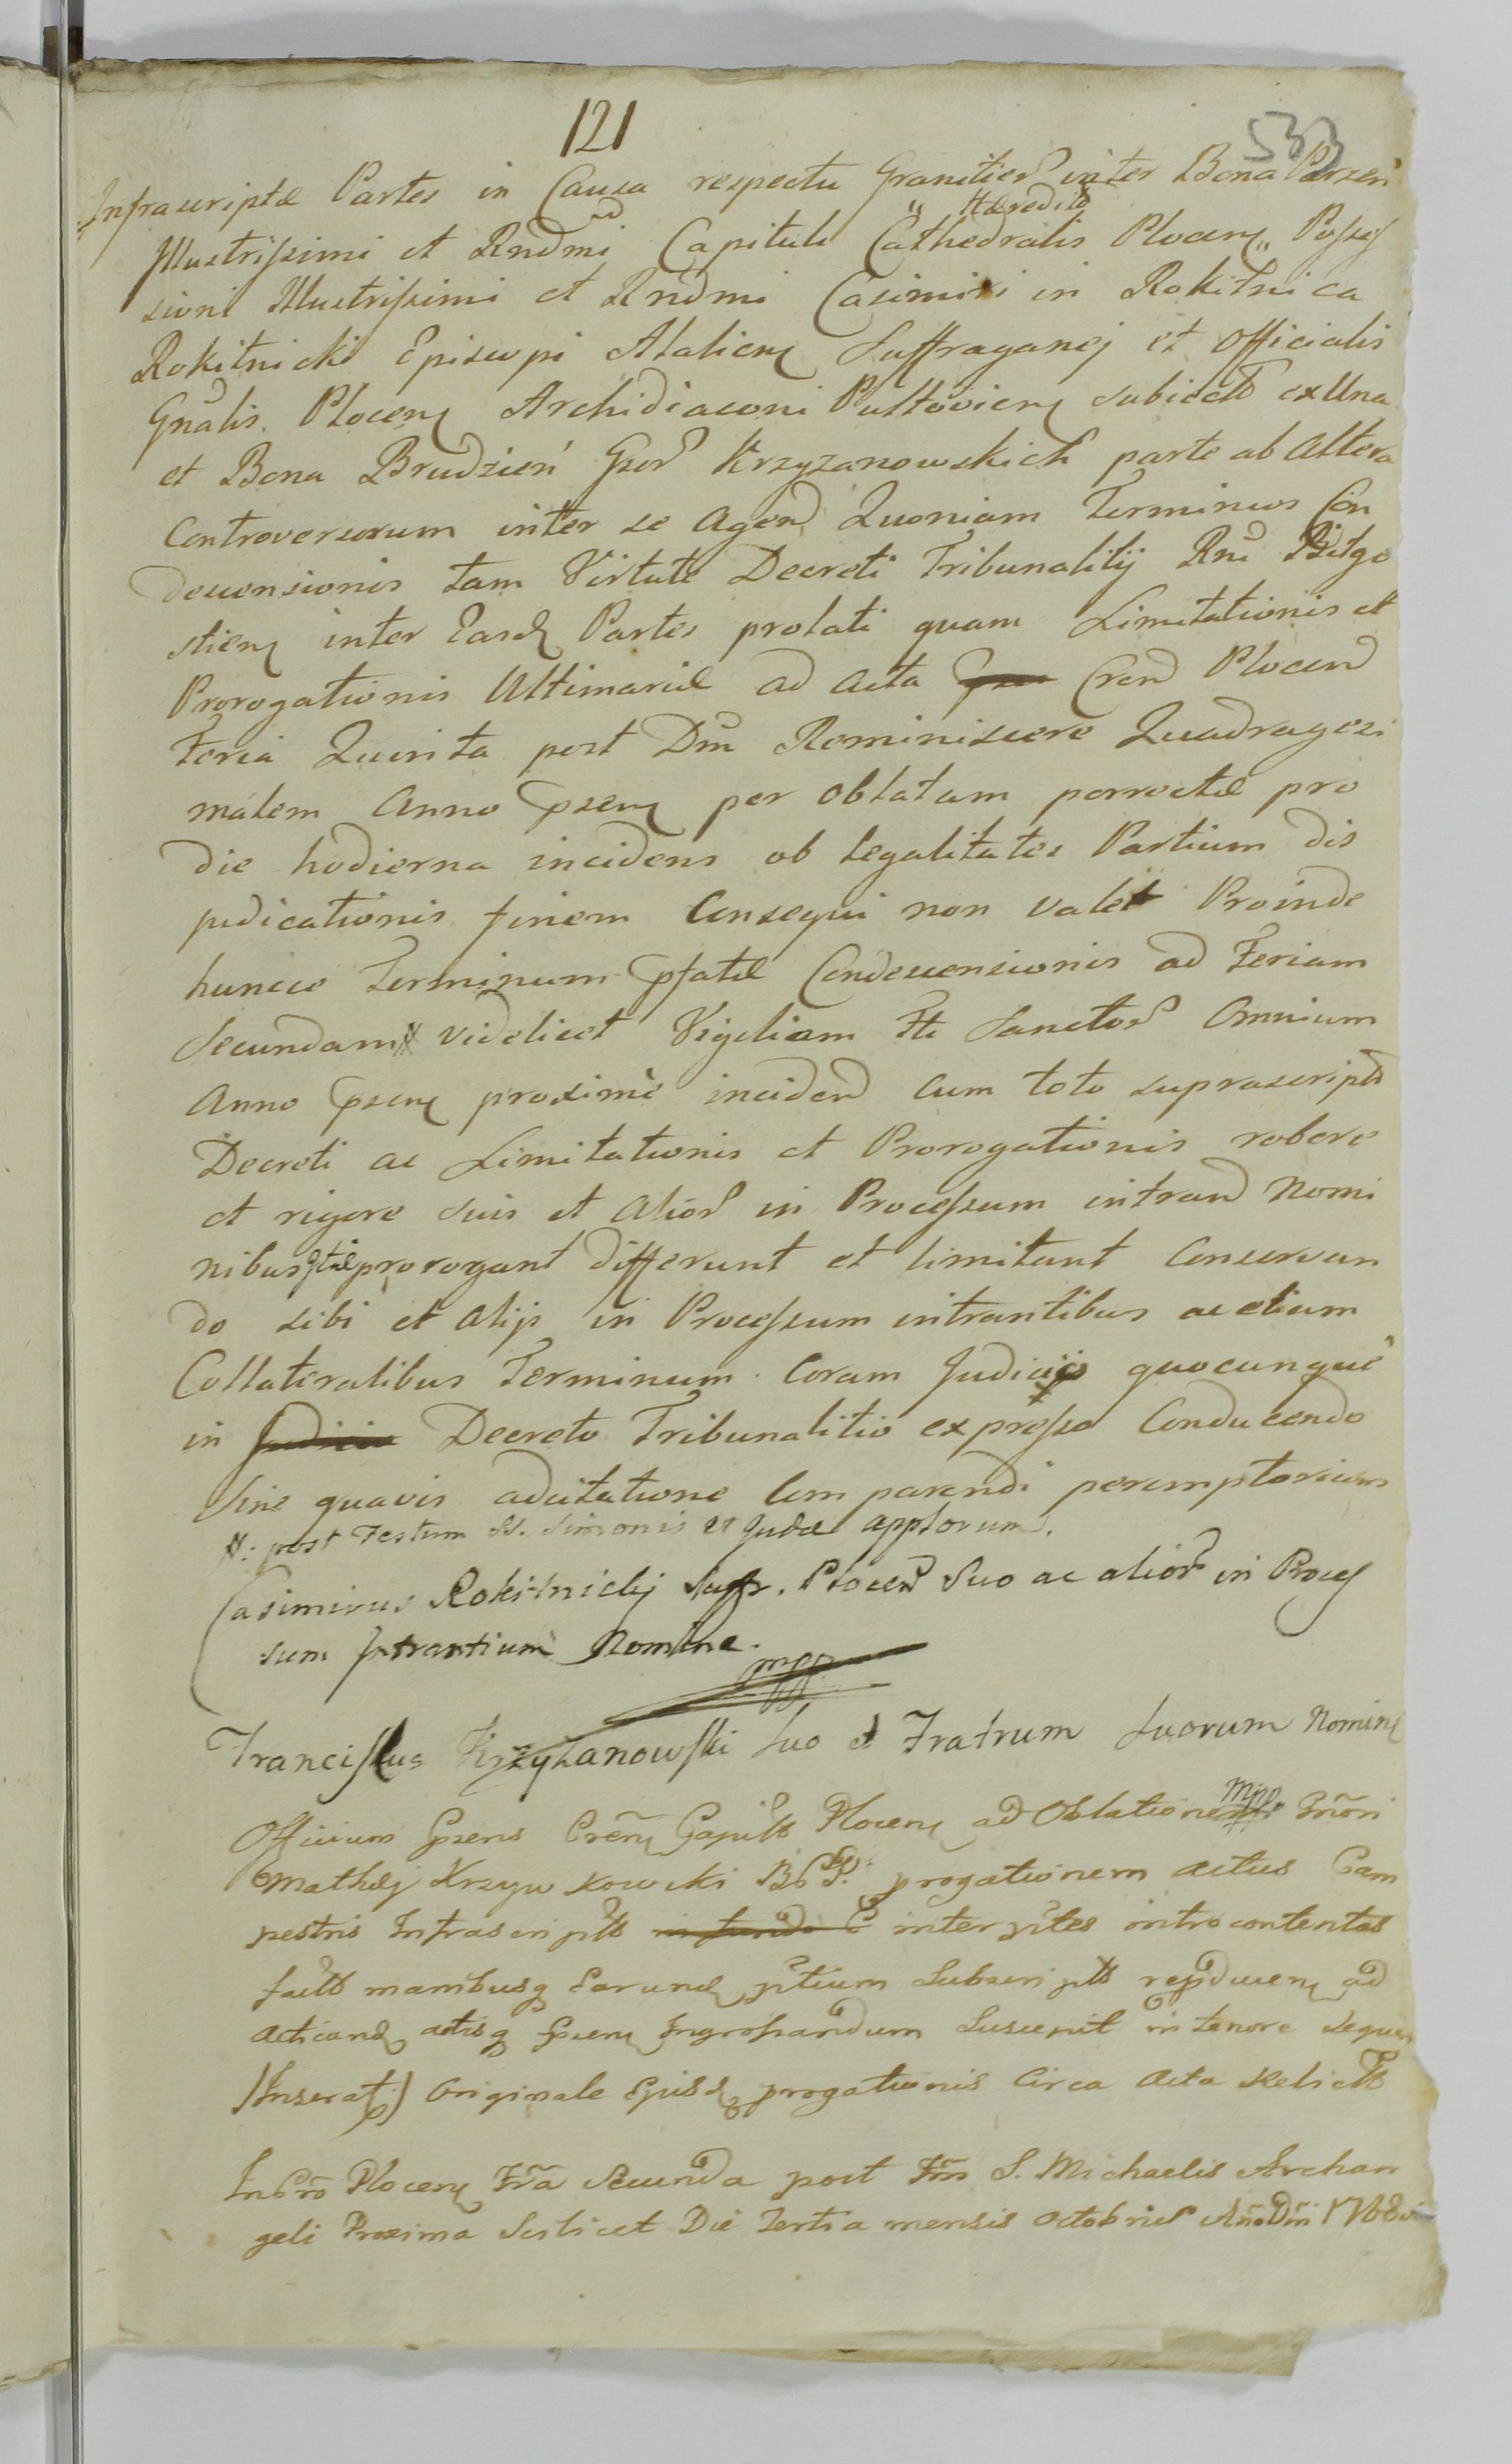 121
533
Infrascriptæ Partes in Causa respectu Granitier inter Bona Parzeń
Hæredit
Illustrissimi et Rndmi Capituli Cathedralis Plocen Posses
sioni Illustrissimi et Rndmi Casimiri in Rokitnica
Rokitnicki Episcopi Atalien Suffraganej et Officialis
Gnalis Plocen Archidiaconi Pultovien subiect ex Una
et Bona Brudzeń Gser Krzyzanowskich parte ab Altera
Controversorum inter se Agen Quoniam Terminus Con
descensionis tam Virtute Decreti Tribunalitij Rni Bitgo
stien inter Easd Partes prolati quam Limitationis et
Prorogationis Ultimariæ ad Acta Cren Plocen
Feria Quinta post Dm Reminiscere Quadragesi
malem Anno psen per Oblatam porrectæ pro
die hodierna incidens ob legalitates Partium dis
judicationis finem Consequi non valet Proinde
huncce Terminum pfatæ Condescensionis ad Feriam
Secundam # videlicet Vigiliam Fti Sanctor Omnium
Anno psen proxime inciden cum toto suprascripti
Decreti ac Limitationis et Prorogationis robore
et rigore suis et Alior in Processum intran Nomi
nibus prorogant differunt et limitant Conservan
do sibi et Alijs in Processum intrantibus ac etiam
Collateralibus Terminum Coram Judicijs quocunque
in Judicio Decreto Tribunalitio expresso Conducendo
Sine quavis adcitatione Comparendi peremptorium
#: post Festum SS. Simonis et Judæ Applorum.
Casimirus Rokitnicki Suffr. Plocen Suo ac alior in Proces
sum Intrantium Nomine.
mpp
Franciscus Krzyżanowski Suo et Fratrum Suorum Nomine
mpp
Officium psens Cren Capitle Plocen ad Oblationem Gnosi
Mathej Krzywkowski progationem Actus Cam
pestris Infrascript inter ptes introcontentas
fact manibusq Earund ptium Subscript reproducen ad
acticand actisq psen Ingrossandum Suscepit in tenore Sequen
/Inseratr/ Originale Ejusd progationis Circa Acta Relict
In Cro Plocen Fra Secunda post Fm S. Michaelis Archan
geli Proxima Scilicet Die Tertia mensis Octobris Ano Dni 1768vo